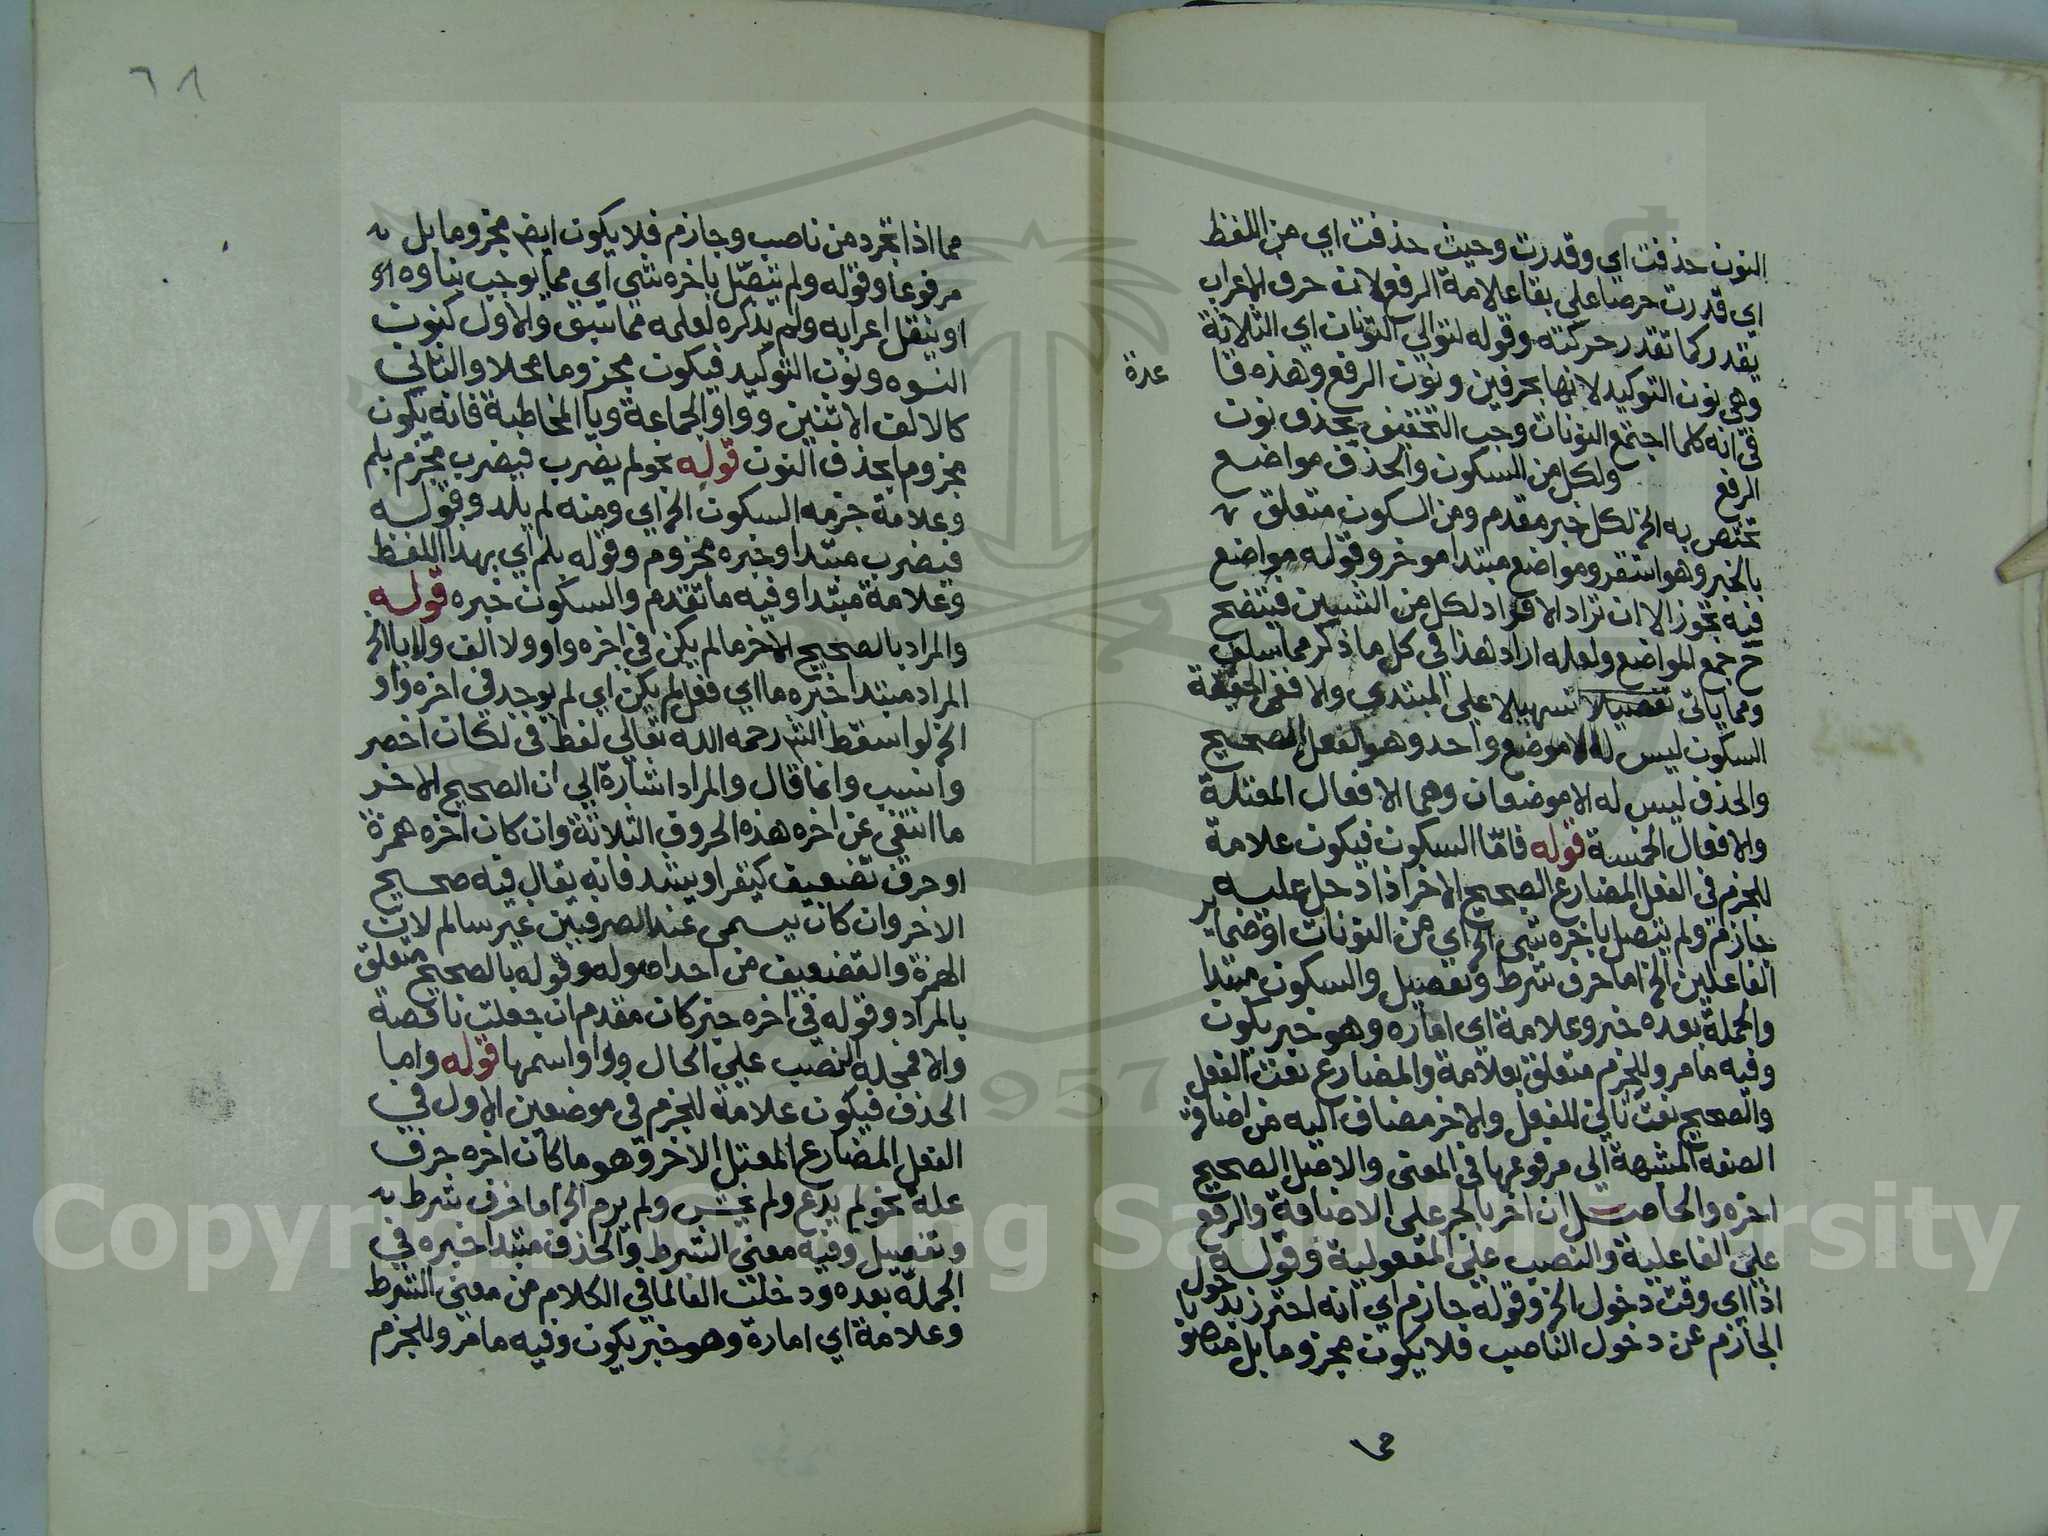 النون حذفت اي وقدرت وحيث حذفت اي من اللفظ
اي قدرت حرصا علي بقا علامة الرفع لانت حرف الاعراب
يقدر كما تقدر حركته وقوله لتوالي النونات اي الثلاثة
وهي نون التوكيد لانها بحرفين ونون الرفع وهذه قا
عدة
في انه كلما اجتمع النونات وجب التخفيف بحذف نون
الرفع ولكل من السكون والحذف مواضع
تختص به الخ لكل خبر مقدم ومن السكون متعلق
بالخبر وهو استقر ومواضع مبتدا موخر وقوله مواضع
فيه تجوز الا ان تراد الافراد لكل من الشيين فيتضح
ح جمع المواضع ولعله اراد هذا في كل ما ذكر مما سلف
ومما ياتي تفصيلا تسهيلا علي المبتدي والا ففي الحقيقة
السكون ليس له الا موضع واحد وهو الفعل الصحيح
والحذف ليس له الا موضعان وهما الافعال المعتلة
والافعال الخمسة قوله فامّا السكون فيكون علامة
للجزم في الفعل المضارع الصحيح الاخر اذا دخل عليه
جازم ولم يتصل باخره شي الخ اي من النونات او ضماير
الفاعلين الخ اما حرف شرط وتفصيل والسكون مبتدا
والجملة بعده خبر وعلامة اي اماره وهو خبر يكون
وفيه ما مر وللجزم متعلق بعلامة والمضارع نعت الفعل
والصحيح نعت ثاني للفعل والاخر مضاف اليه من اضافة
الصفه المشبهة الي مرفوعها في المعني والاصل الصحيح
اخره والحاصل ان اخر بالجر علي الاضافة والرفع
علي الفاعلية والنصب علي المفعولية وقوله
اذا اي وقت دخول الخ وقوله جازم اي انه احترز بدخول
الجازم عن دخول الناصب فلا يكون مجزوما بل منصوبا
٦٨
مما اذا تجرد من ناصب وجازم فلا يكون ايضم مجزوما بل
مرفوعا وقوله ولم يتصّل باخره شي اي مما يوجب بناوه
او ينقل اعرابه ولم يذكره لعلمه مما سبق والاول كنون
النسوه ونون التوكيد فيكون مجزوما محلا والثاني
كالالف الاثنين وواو الجماعة ويا المخاطبة فانه يكون
مجزوما بحذف النون قوله نحو لم يضرب فيضرب مجزم بلم
وعلامة جزمه السكون الخ اي ومنه لم يلد وقوله
فيضرب مبتدا وخبره مجزوم وقوله بلم اي بهذا اللفظ
وعلامة مبتدا وفيه ما تقدم والسكون خبره قوله
والمراد بالصحيح الاخر ما لم يكن في اخره واو ولا الف ولا يا الخ
المراد مبتدا خبره ما اي فعل لم يكن اي لم يوجد في اخره واو
الخ لو اسقط الش رحمه الله تعالي لفظ في لكان اخصر
وانسب وانما قال والمراد اشارة الي ان الصحيح الاخر
ما انتفي عن اخره هذه الحروف الثلاثة وان كان اخره همزة
او حرف تضعيف كيقرا ويشد فانه يقال فيه صحيح
الاخر وان كان يسمى عند الصرفيين غير سالم لان
الهمزة والتضعيف من احد اصوله وقوله بالصحيح متعلق
بالمراد وقوله في اخره خبر كان مقدم ان جعلت ناقصة
والا فمحله النصب علي الحال وواو اسمها قوله واما
الحذف فيكون علامة للجزم في موضعين الاول في
الفعل المضارع المعتل الاخر وهو ما كان اخره حرف
علة نحو لم يدع ولم يخش ولم يرم الخ اما حرف شرط
وتفصيل وفيه معني الشرط والحذف مبتدا خبره في
الجملة بعده ودخلت الفا لما في الكلام من معني الشرط
وعلامة اي امارة وهو خبر يكون وفيه ما مر وللجزم
1957
Copyright © King Saud University